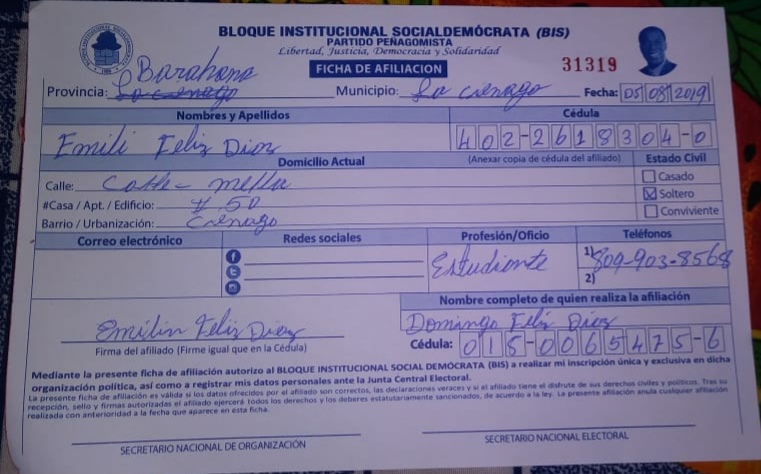 BLOQUE INSTITUCIONAL SOCIALDEMÓCRATA (BIS)
PARTIDO PEÑAGOMISTA
Libertad, Justicia, Democracia y Solidaridad
FICHA DE AFILIACION
31319
Barahona
Provincia: La cienaga Municipio: La cienaga Fecha: 05/08/2019
Nombres y Apellidos Cédula
Emili Feliz Diaz 402-2618304-0
Domicilio Actual (Anexar copia de cédula del afiliado) Estado Civil
Calle: Calle mella Casado
#Casa / Apt. / Edificio: # 50 Soltero
Barrio / Urbanización: Cienaga Conviviente
Correo electrónico Redes sociales Profesión/Oficio Teléfonos
Estudiante 1) 809-903-8568
2)
Nombre completo de quien realiza la afiliación
Emilin Feliz Diaz Domingo Feliz Diaz
Firma del afiliado (Firme igual que en la Cédula) Cédula: 018-0065475-6
Mediante la presente ficha de afiliación autorizo al BLOQUE INSTITUCIONAL SOCIAL DEMÓCRATA (BIS) a realizar mi inscripción única y exclusiva en dicha
organización política, así como a registrar mis datos personales ante la Junta Central Electoral.
La presente ficha de afiliación es válida si los datos ofrecidos por el afiliado son correctos, las declaraciones veraces y si el afiliado tiene el disfrute de sus derechos civiles y políticos. Tras su
recepción, sello y firmas autorizadas el afiliado ejercerá todos los derechos y los deberes estatutariamente sancionados, de acuerdo a la ley. La presente afiliación anula cualquier afiliación
realizada con anterioridad a la fecha que aparece en esta ficha.
SECRETARIO NACIONAL DE ORGANIZACIÓN SECRETARIO NACIONAL ELECTORAL